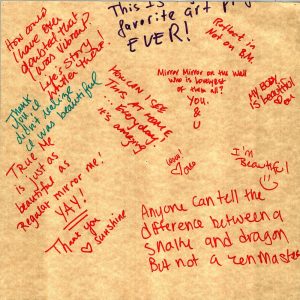 This is
favorite art pi
EVER!
How could
I have ever
doubted that
I was vibrant?
Life-story
Matter
Reflect in
Not on
Mirror Mirror on the Wall
who is lovelyest
of them all?
You.
&
U
MY BODY
IS BEAUTIFUL
Thank
you. I
didn't realize
it was beautiful
HOW CAN I SEE
THIS AT HOME,
... Everyday,
is amazing
TRUE Me
is just as
beautiful as
Regular mirror me!
YAY!
Thank you
Sunshine
I'm
Beautiful
Anyone can tell the
difference between a
snake and dragon
But not a zenmaster